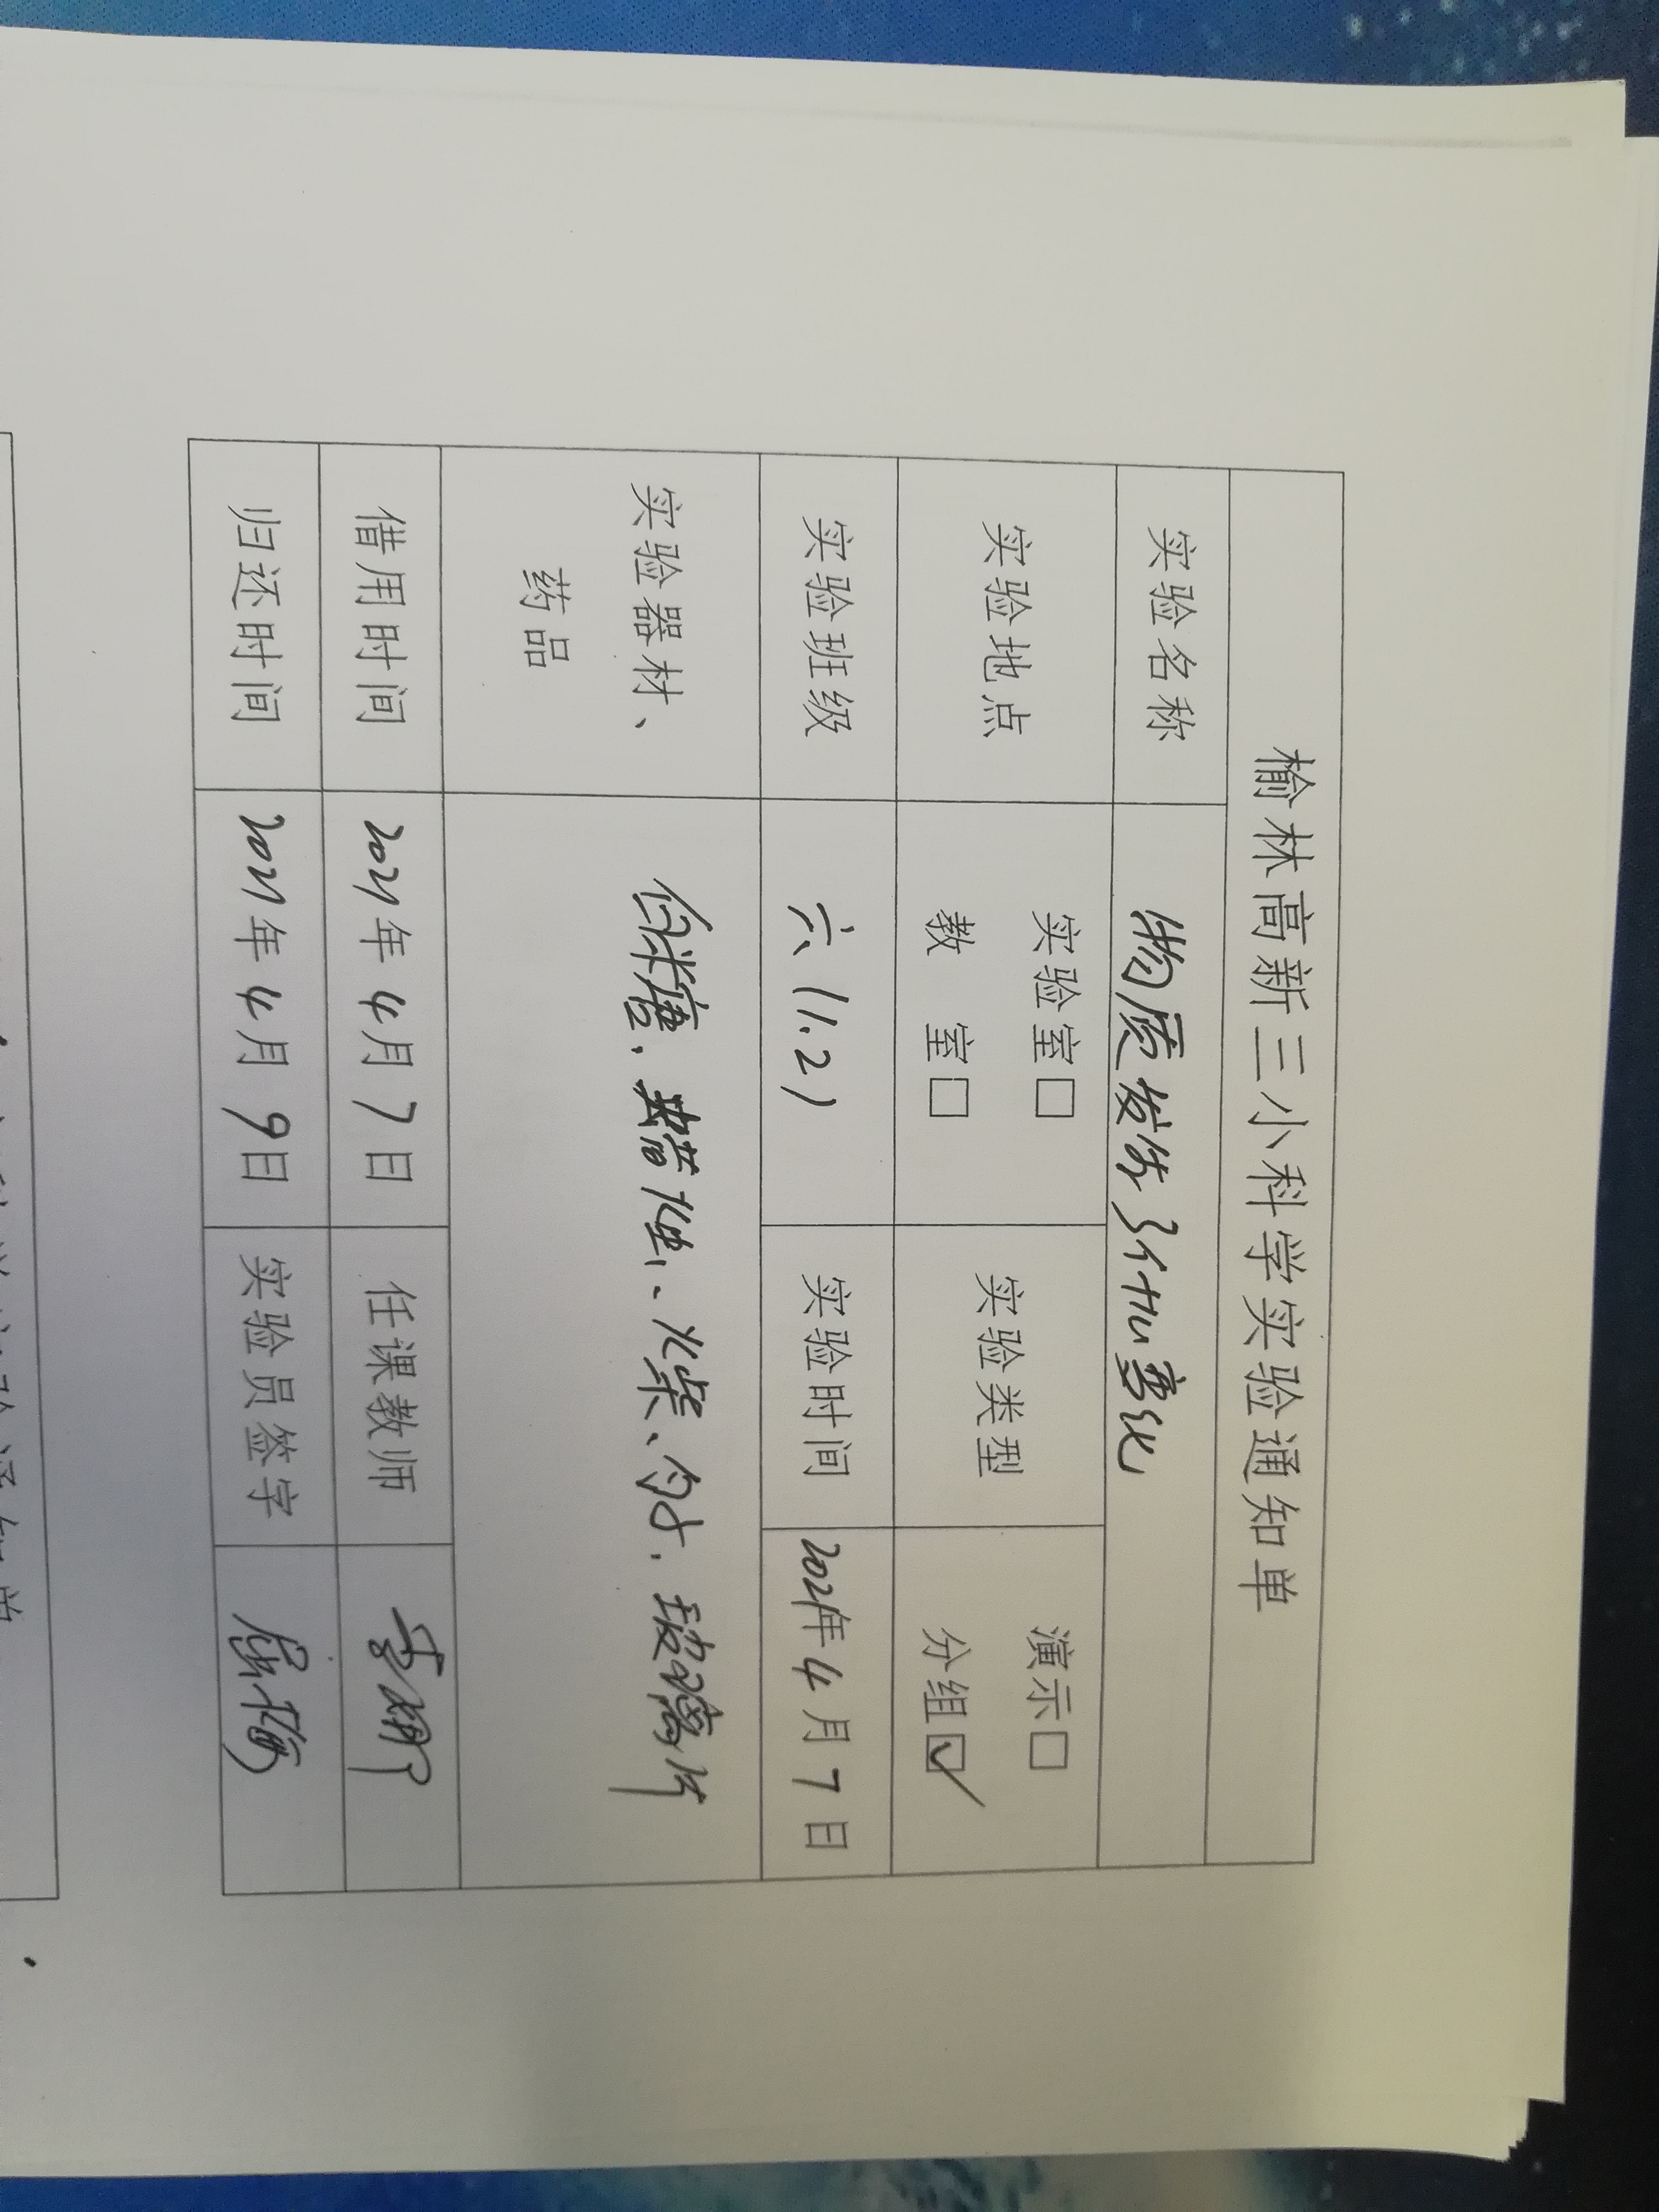 榆林高新三小科学实验通知单
实验名称 物质发生了什么变化
实验地点 实验室□ 教 室□ 实验类型 演示□ 分组☑
实验班级 六(1.2) 实验时间 2021年4月7日
实验器材、药品 白糖、蜡烛、火柴、勺子、玻璃片
借用时间 2021年4月7日 任课教师
归还时间 2021年4月9日 实验员签字 屈梅